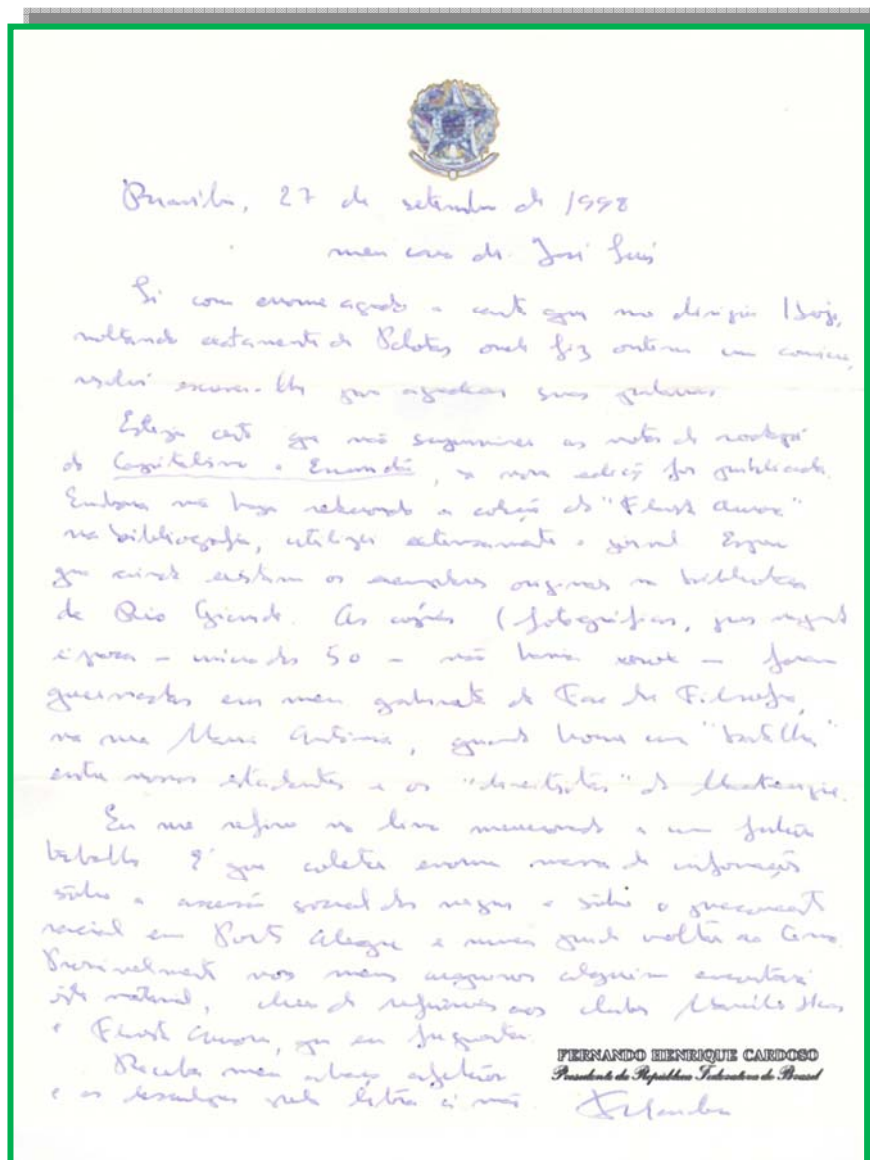 Brasília, 27 de setembro de 1998
meu caro dr. José Luis
Li com enorme agrado a carta que me dirigiu. Hoje,
voltando exatamente de Pelotas onde fiz ontem um comício,
resolvi escrever-lhe para agradecer suas palavras.
Esteja certo que não as notas de rodapé
do Capitalismo e Escravidão, se nova edição for publicada.
Embora não haja a coleção do "Floresta Aurora"
na bibliografia, utilizei extensamente o jornal. Espero
que ainda existam os exemplares originais na biblioteca
de Rio Grande. As cópias (fotográficas, pois naquela
época – início dos 50 – não havia xerox – foram
queimadas em meu gabinete da Fac de Filosofia,
na rua Maria Antônia, quando houve uma "batalha"
entre nossos estudantes e os "direitistas" do Mackenzie.
Eu me refiro no livro mencionado a um futuro
trabalho. É que coletei enorme massa de informação
sôbre a ascensão social dos negros e sôbre o preconceito
racial em Porto Alegre e nunca pude voltar ao tema.
Possivelmente nos meus arquivos alguém encontrará
este material, cheio de referências aos clubes Marcílio Dias
e Floresta Aurora, que eu frequentei.
Receba meu abraço afetuoso
e as desculpas pela letra à mão.
FERNANDO HENRIQUE CARDOSO
Presidente da República Federativa do Brasil